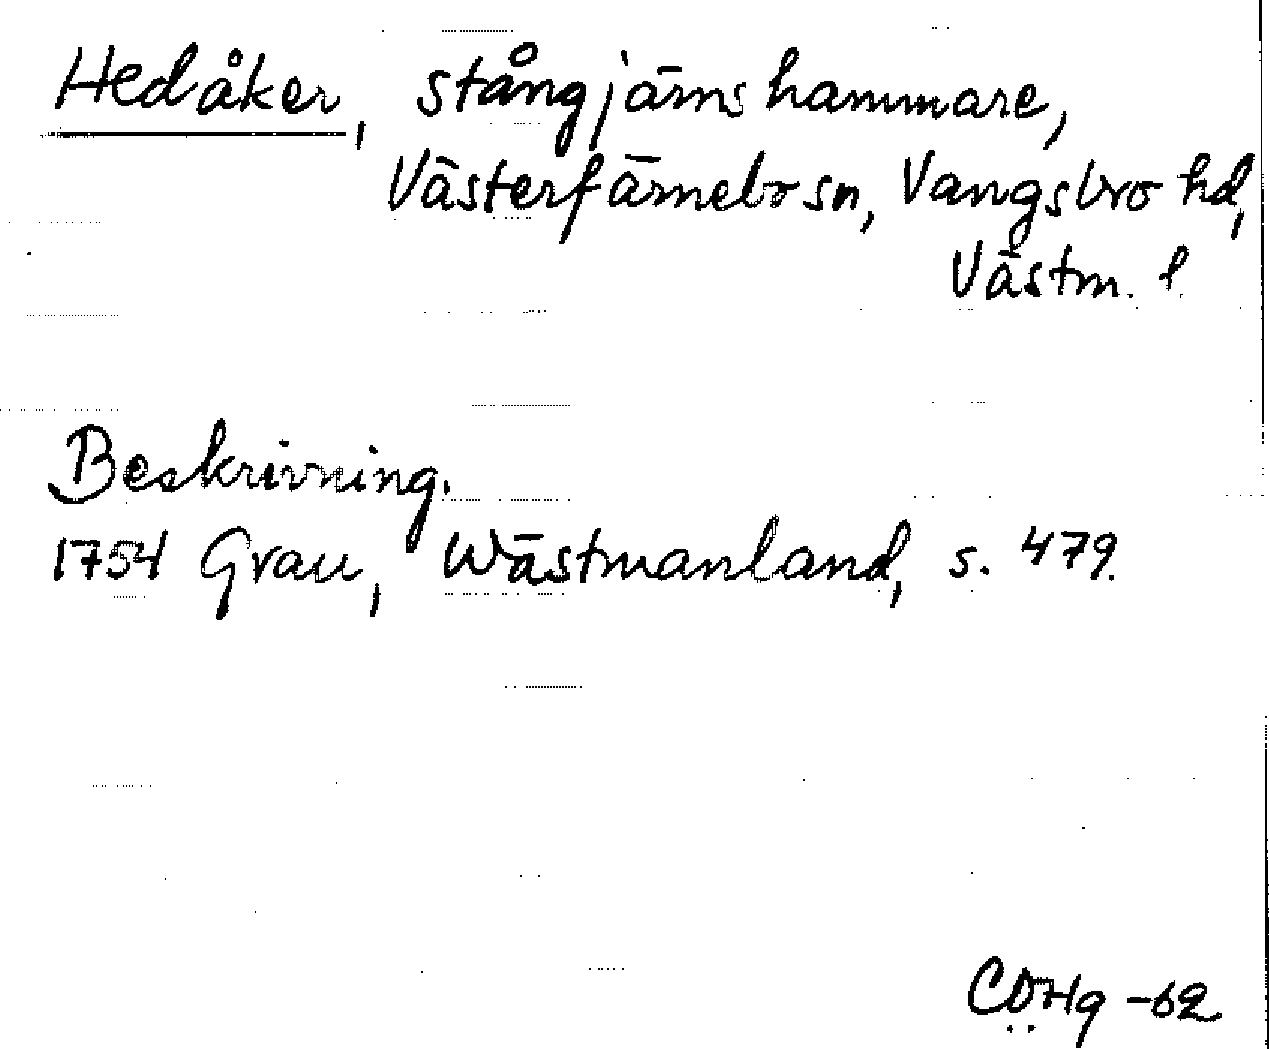 Hedåker, stångjärnshammare,
Västerfärnebo sn, Vangsbro hd,
Västm. l.
Beskrivning.
1754 Grau, Wästmanland, s. 479.
CÖHg -62